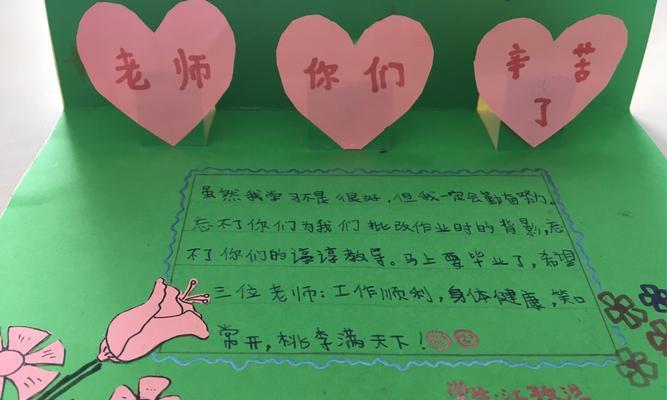 老师
你们
辛苦
了
虽然我学习不是很好，但我一定会勤奋努力。
忘不了你们为我们批改作业时的背影，忘
不了你们的谆谆教导。马上要毕业了，希望
三位老师：工作顺利，身体健康，笑口
常开，桃李满天下！